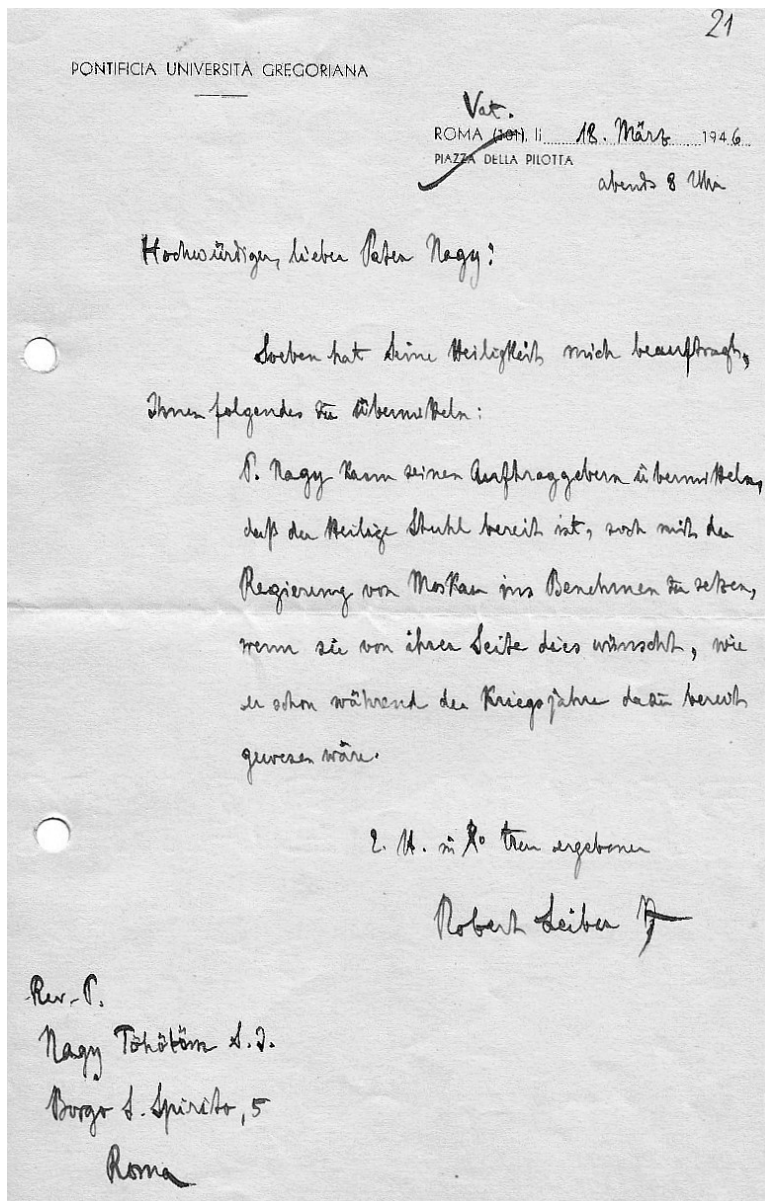 21
PONTIFICIA UNIVERSITÀ GREGORIANA
Vat.
ROMA (101), li 18. März 1946
PIAZZA DELLA PILOTTA
abends 8 Uhr
Hochwürdiger, lieber Pater Nagy!
Soeben hat Seine Heiligkeit mich beauftragt,
Ihnen folgendes zu übermitteln:
P. Nagy kann seinen Auftraggebern übermitteln,
daß der Heilige Stuhl bereit ist, sich mit der
Regierung von Moskau ins Benehmen zu setzen,
wenn sie von ihrer Seite dies wünscht, wie
er schon während der Kriegsjahre dazu bereit
gewesen wäre.
E. H. in treu ergebener
Robert Leiber SJ
Rev. P.
Nagy Töhötöm S.J.
Borgo S. Spirito, 5
Roma